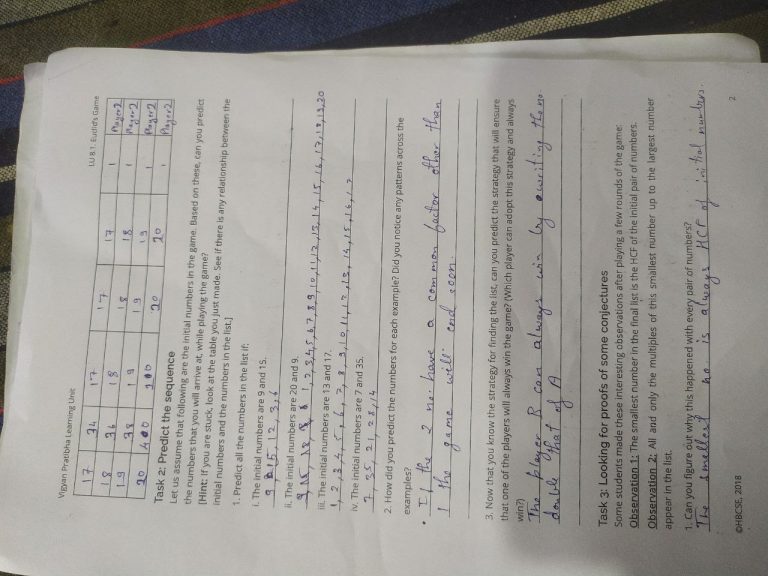 Vigyan Pratibha Learning Unit
LU 8.1: Euclid's Game
17 34 17 17 17 1 Player 2
18 36 18 18 18 1 Player 2
19 38 19 19 19 1 Player 2
20 400 200 20 20 1 Player 2
Task 2: Predict the sequence
Let us assume that following are the initial numbers in the game. Based on these, can you predict
the numbers that you will arrive at, while playing the game?
[Hint: If you are stuck, look at the table you just made. See if there is any relationship between the
initial numbers and the numbers in the list.]
1. Predict all the numbers in the list if:
i. The initial numbers are 9 and 15.
9 15, 12, 3, 6
ii. The initial numbers are 20 and 9.
1, 2, 3, 4, 5, 6, 7, 8, 9, 10, 11, 12, 13, 14, 15, 16, 17, 18, 19, 20
iii. The initial numbers are 13 and 17.
1, 2, 3, 4, 5, 6, 7, 8, 9, 10, 11, 12, 13, 14, 15, 16, 17
iv. The initial numbers are 7 and 35.
7 35, 21, 28, 14
2. How did you predict the numbers for each example? Did you notice any patterns across the
examples?
• If the 2 no. have a common factor other than
1 the game will end soon.
3. Now that you know the strategy for finding the list, can you predict the strategy that will ensure
that one of the players will always win the game? (Which player can adopt this strategy and always
win?)
The player B can always win by writing the no.
double that of A
Task 3: Looking for proofs of some conjectures
Some students made these interesting observations after playing a few rounds of the game:
Observation 1: The smallest number in the final list is the HCF of the initial pair of numbers.
Observation 2: All and only the multiples of this smallest number up to the largest number
appear in the list.
1. Can you figure out why this happened with every pair of numbers?
The smallest no is always HCF of initial numbers.
©HBCSE, 2018
2